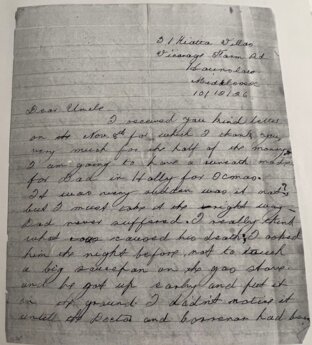 31 Villas
Vicarage Farm Rd
Hounslow
Middlesex
10/12/26
Dear Uncle
I received you kind letter
on Nov for which I thank you
very much for the half of the money
I am going to have a wreath made
for Dad in Holly for
It was very sudden was it not
but I must take it the right way
Dad never suffered. I really think
what caused his death, I asked
him the night before not to touch
a big saucepan on the gas stove
and he got up early and put it
on the ground I didn't notice it
until the Doctor and had